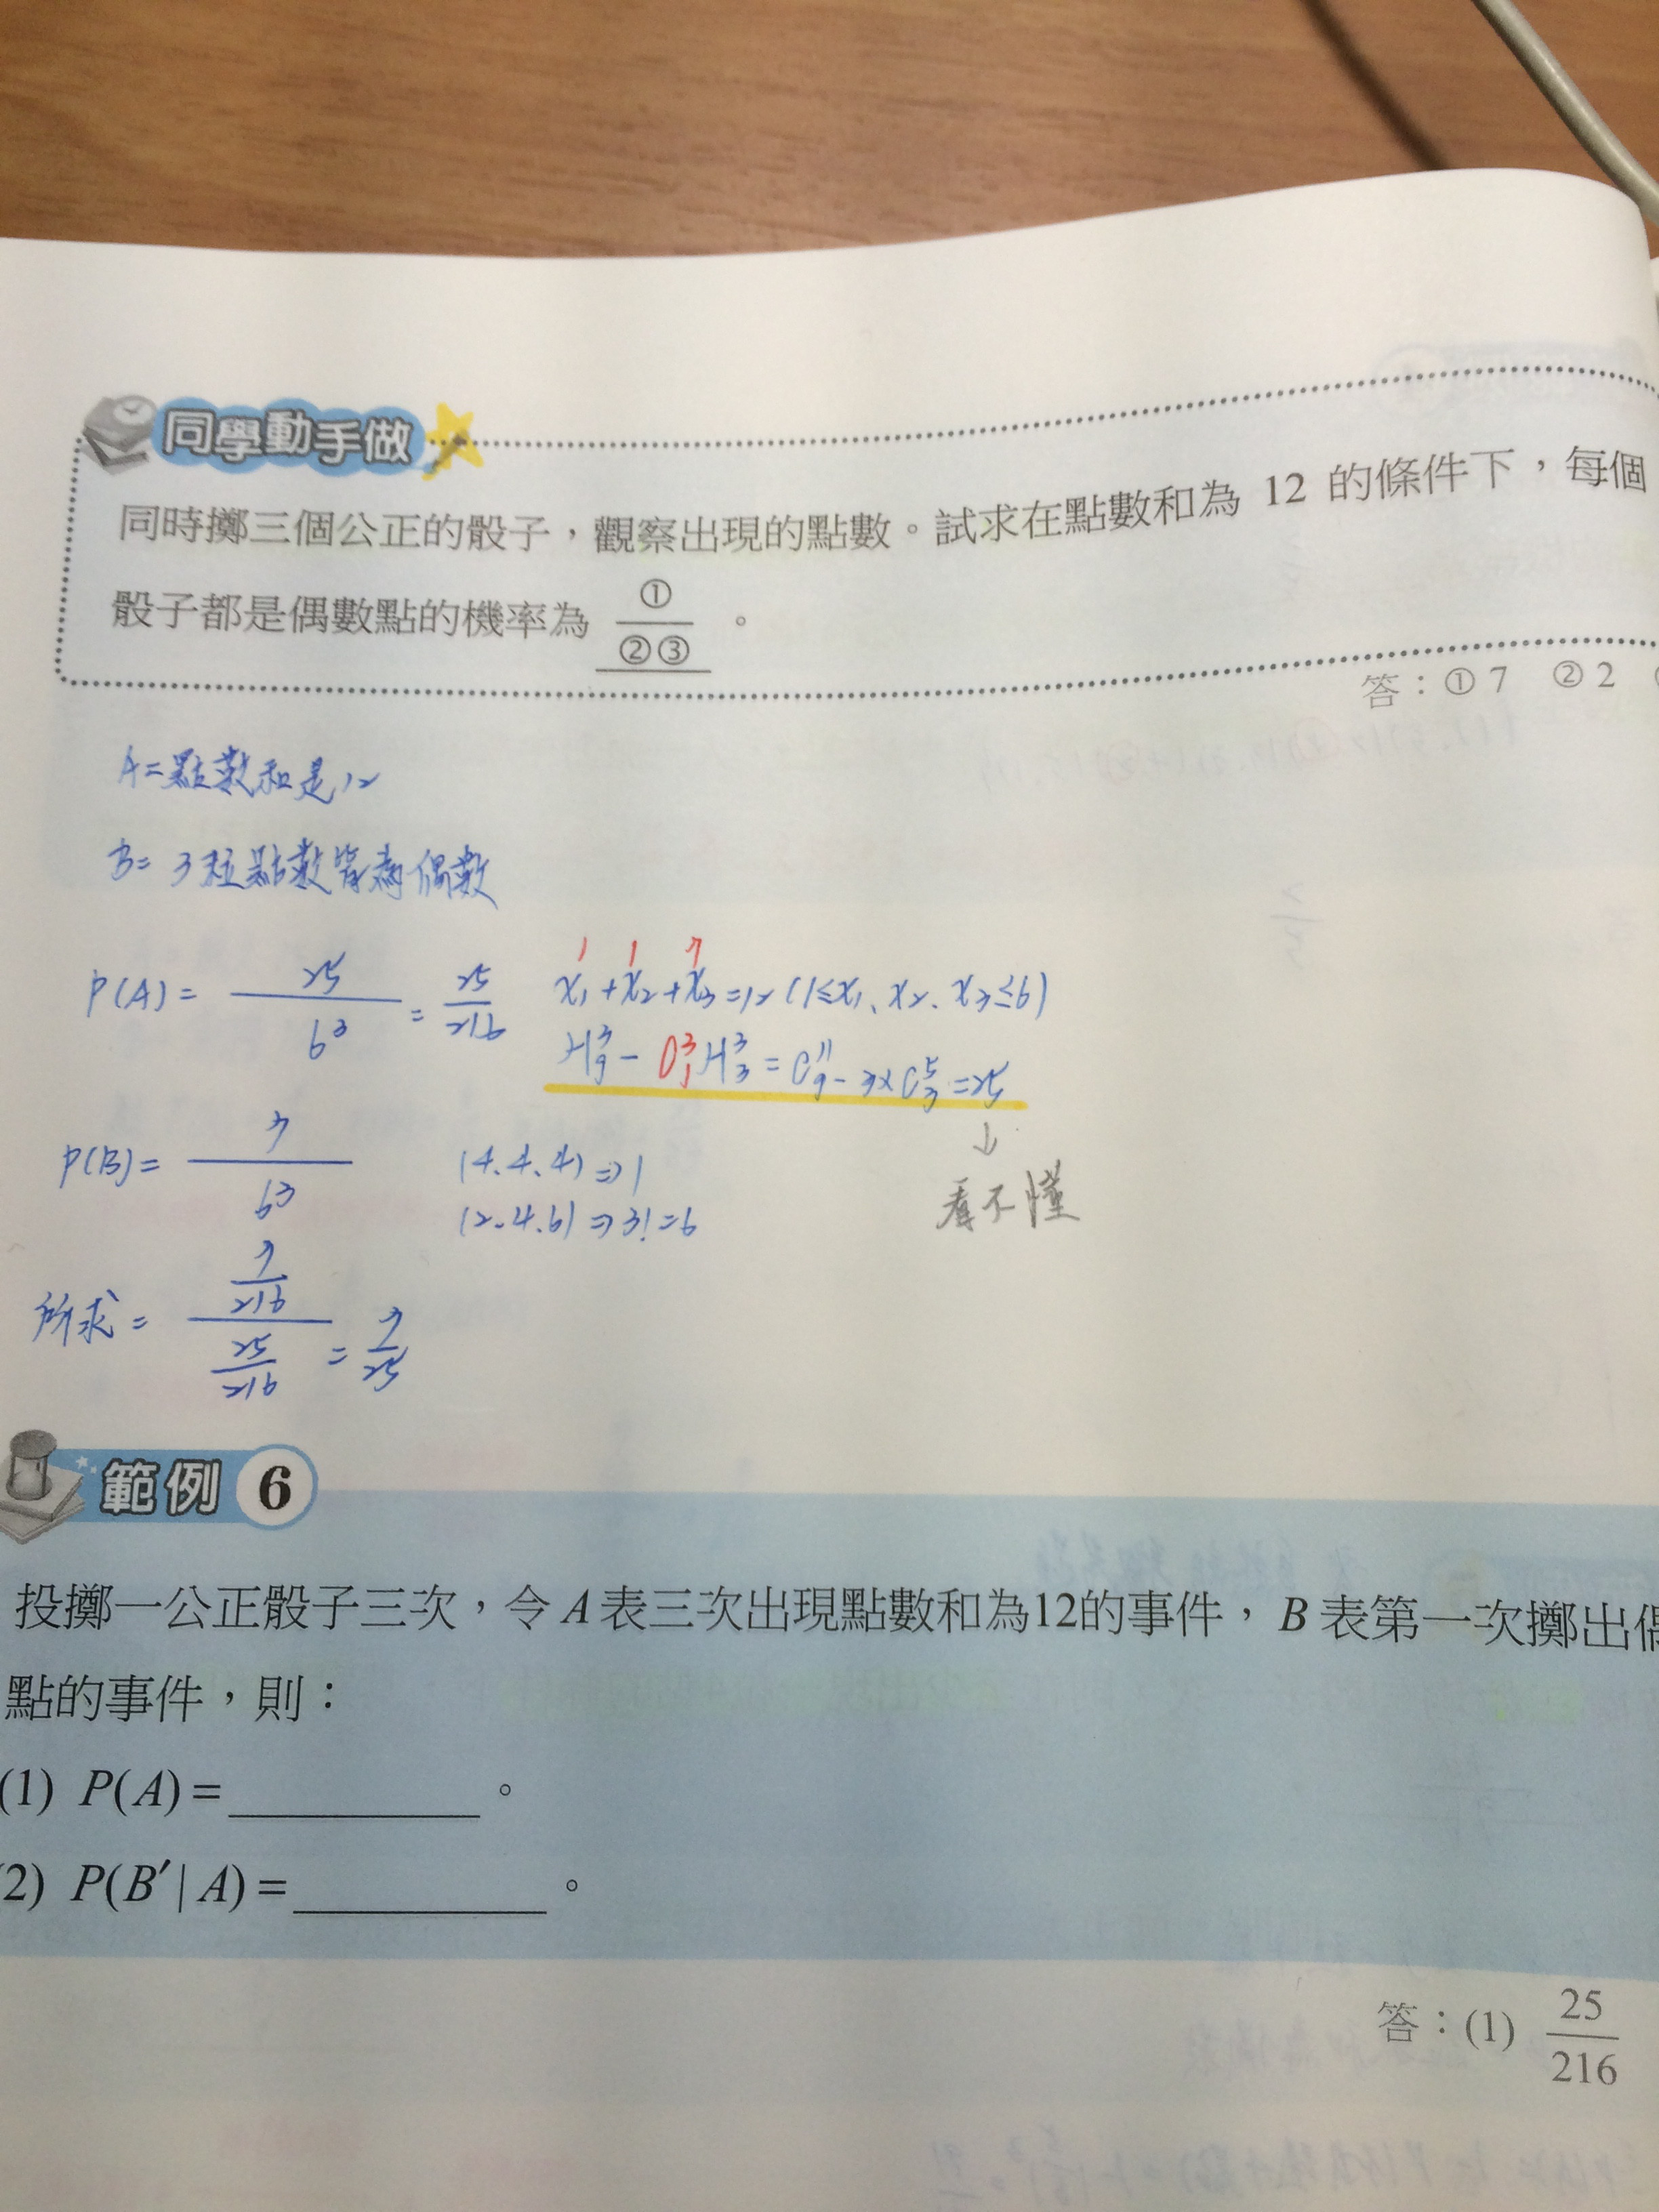 同學動手做
同時擲三個公正的骰子，觀察出現的點數。試求在點數和為 12 的條件下，每個
骰子都是偶數點的機率為 ①/②③ 。
答：① 7 ② 2
A=點數和是12
B= 3粒點數皆為偶數
1 1 7
P(A) = 25/6³ = 25/216 x₁+x₂+x₃=12 (1≤x₁、x₂、x₃≤6)
H³₉ - C³₁H³₃ = C¹¹₉ - 3×C⁵₃ = 25
↓
看不懂
P(B) = 7/6³ (4.4.4) ⇒ 1
(2.4.6) ⇒ 3! = 6
所求 = 7/216 / 25/216 = 7/25
範例 6
投擲一公正骰子三次，令 A 表三次出現點數和為12的事件，B 表第一次擲出偶
點的事件，則：
(1) P(A) = ________ 。
2) P(B′| A) = ________ 。
答：(1) 25/216